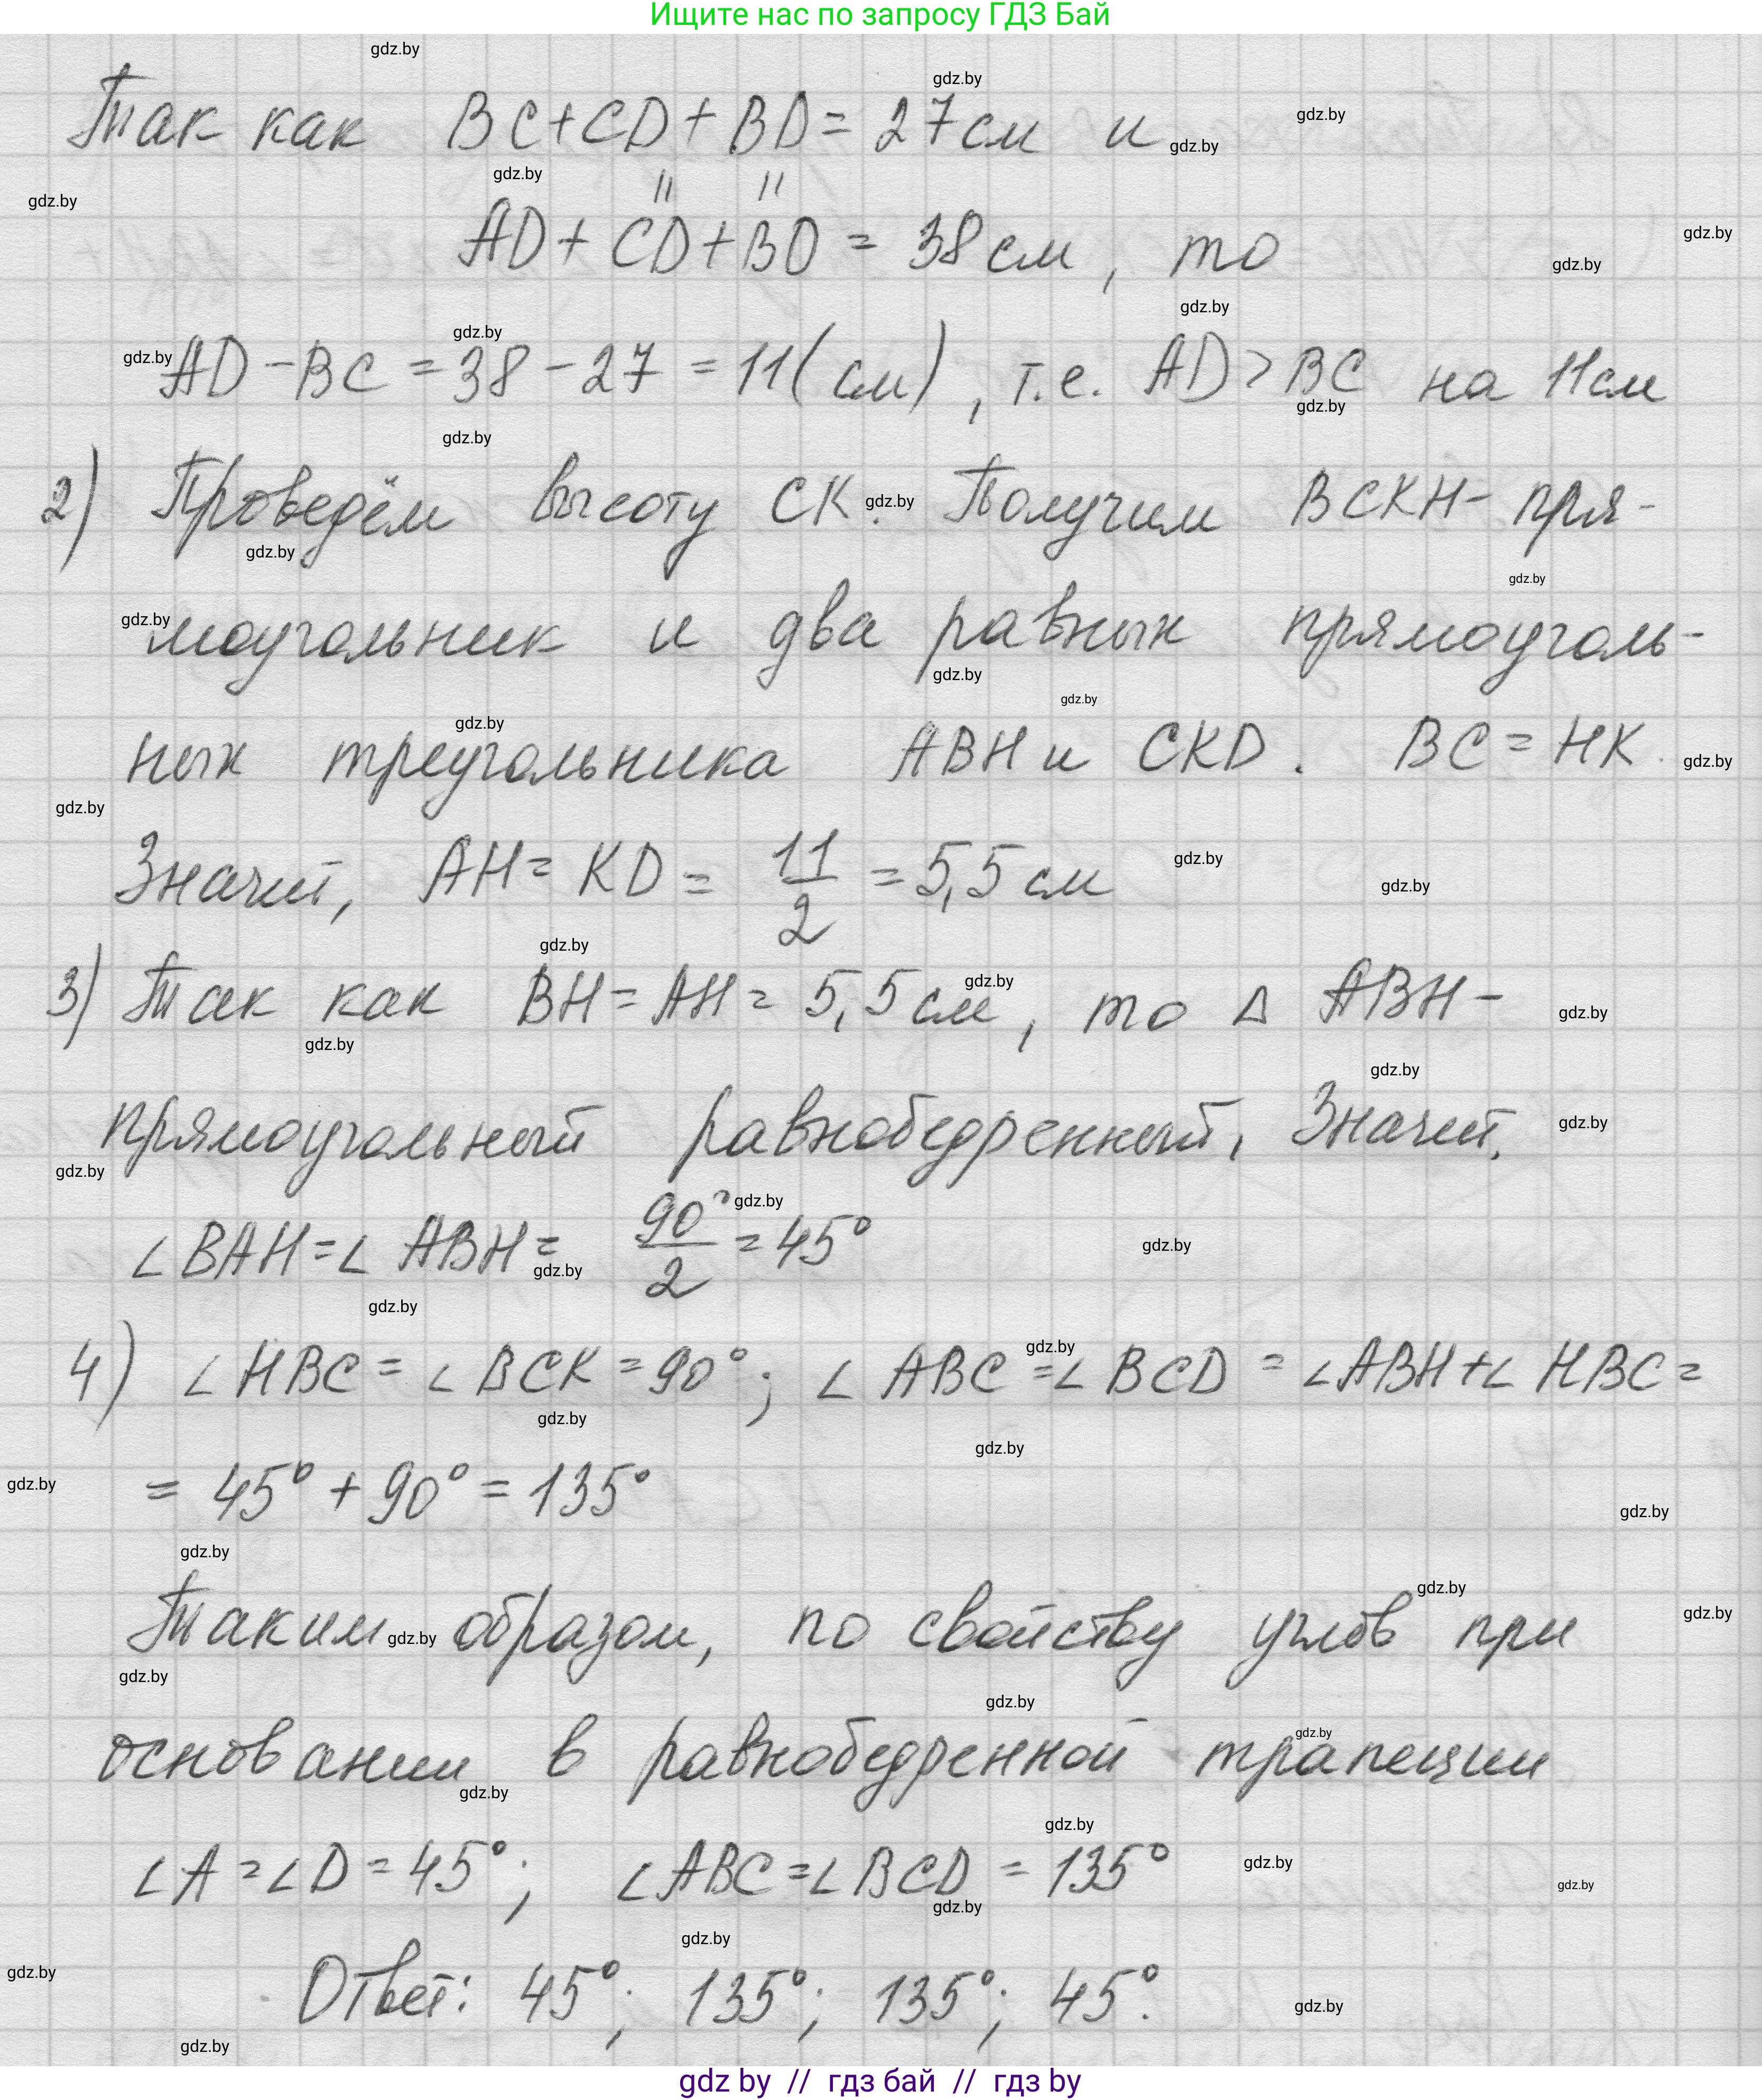 Ищите нас по запросу ГДЗ Бай
Так как BC+CD+BD=27см и
" "
AD+CD+BD=38см, то
AD-BC=38-27=11(см), т.е. AD>BC на 11см
2) Проведём высоту СК. Получим ВСКН- пря-
моугольник и два равных прямоуголь-
ных треугольника АВН и СКD. BC=НК
Значит, АН=КD=11/2=5,5см
3) Так как ВН=АН=5,5см, то Δ АВН-
прямоугольный равнобедренный, Значит,
∠ВАН=∠АВН=90°/2=45°
4) ∠НВС=∠ВСК=90°; ∠АВС=∠BCD=∠АВН+∠НВС=
=45°+90°=135°
Таким образом, по свойству углов при
основании в равнобедренной трапеции
∠А=∠D=45°; ∠АВС=∠BCD=135°
Ответ: 45°; 135°; 135°; 45°.
gdz by // гдз бай // гдз by